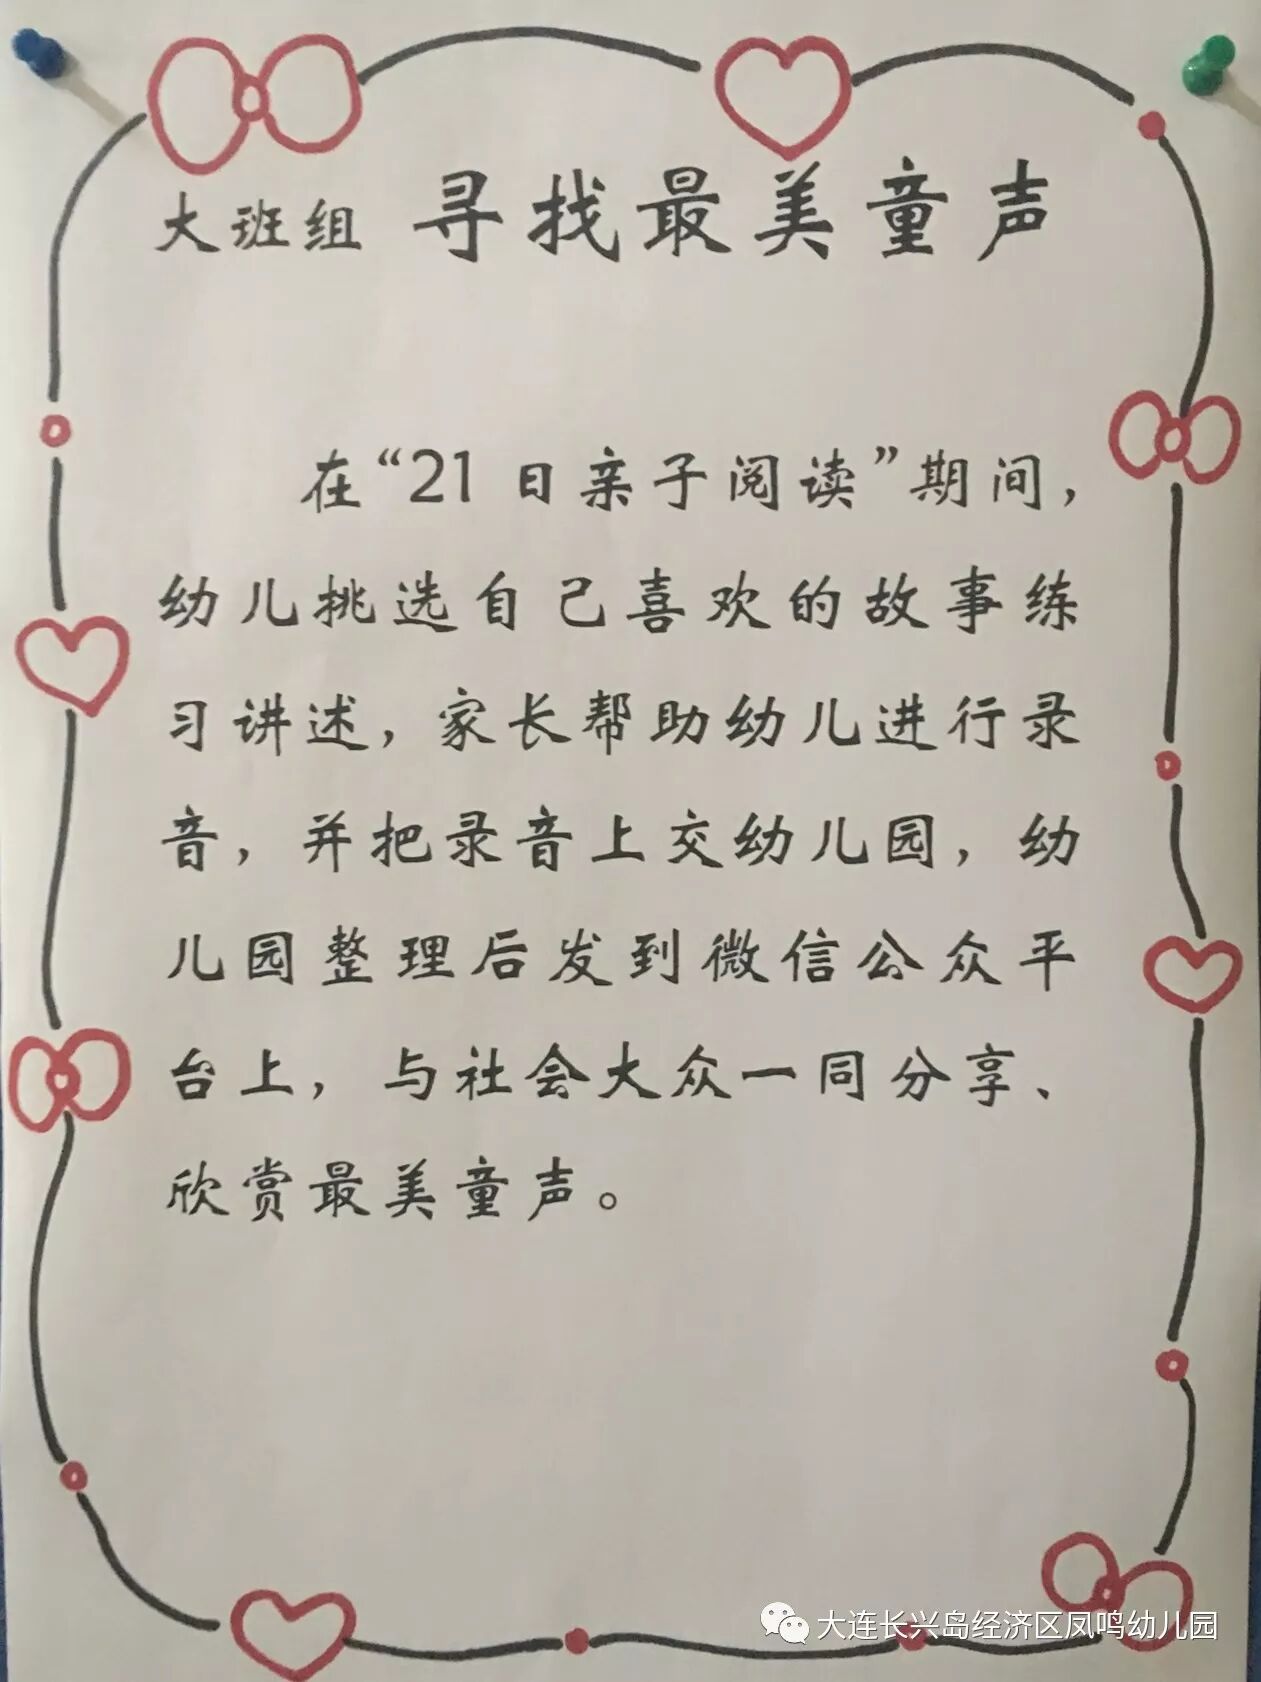 大班组 寻找最美童声
在“21日亲子阅读”期间，
幼儿挑选自己喜欢的故事练
习讲述，家长帮助幼儿进行录
音，并把录音上交幼儿园，幼
儿园整理后发到微信公众平
台上，与社会大众一同分享、
欣赏最美童声。
大连长兴岛经济区凤鸣幼儿园